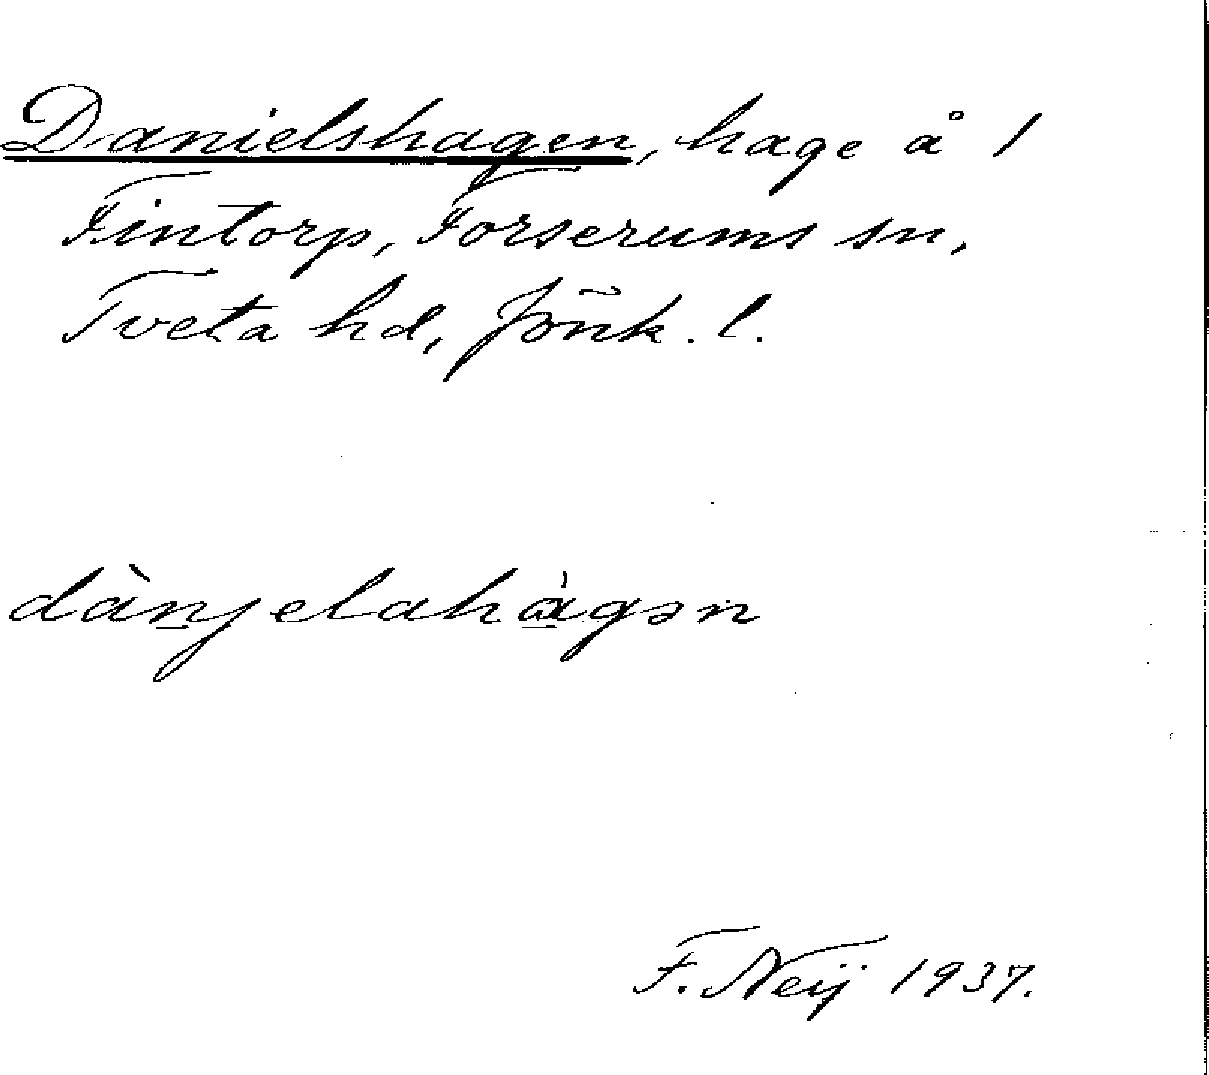 Danielshagen, hage å 1
Fintorp, Forserums sn,
Tveta hd, Jönk. l.
dànjelahàgən
F. Neij 1937.